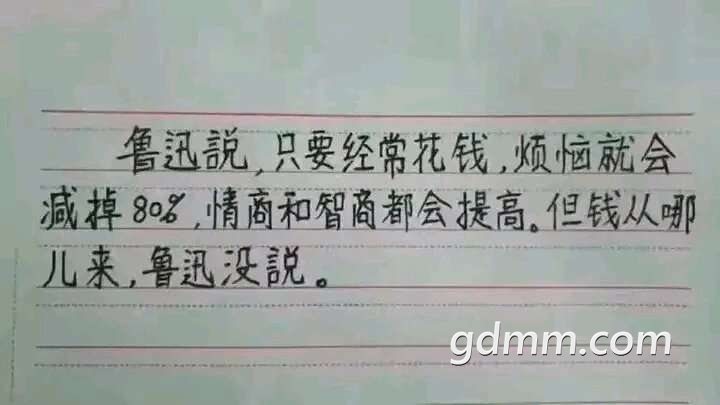 鲁迅説,只要经常花钱,烦恼就会
减掉80%,情商和智商都会提高。但钱从哪
儿来,鲁迅没説。
gdmm.com